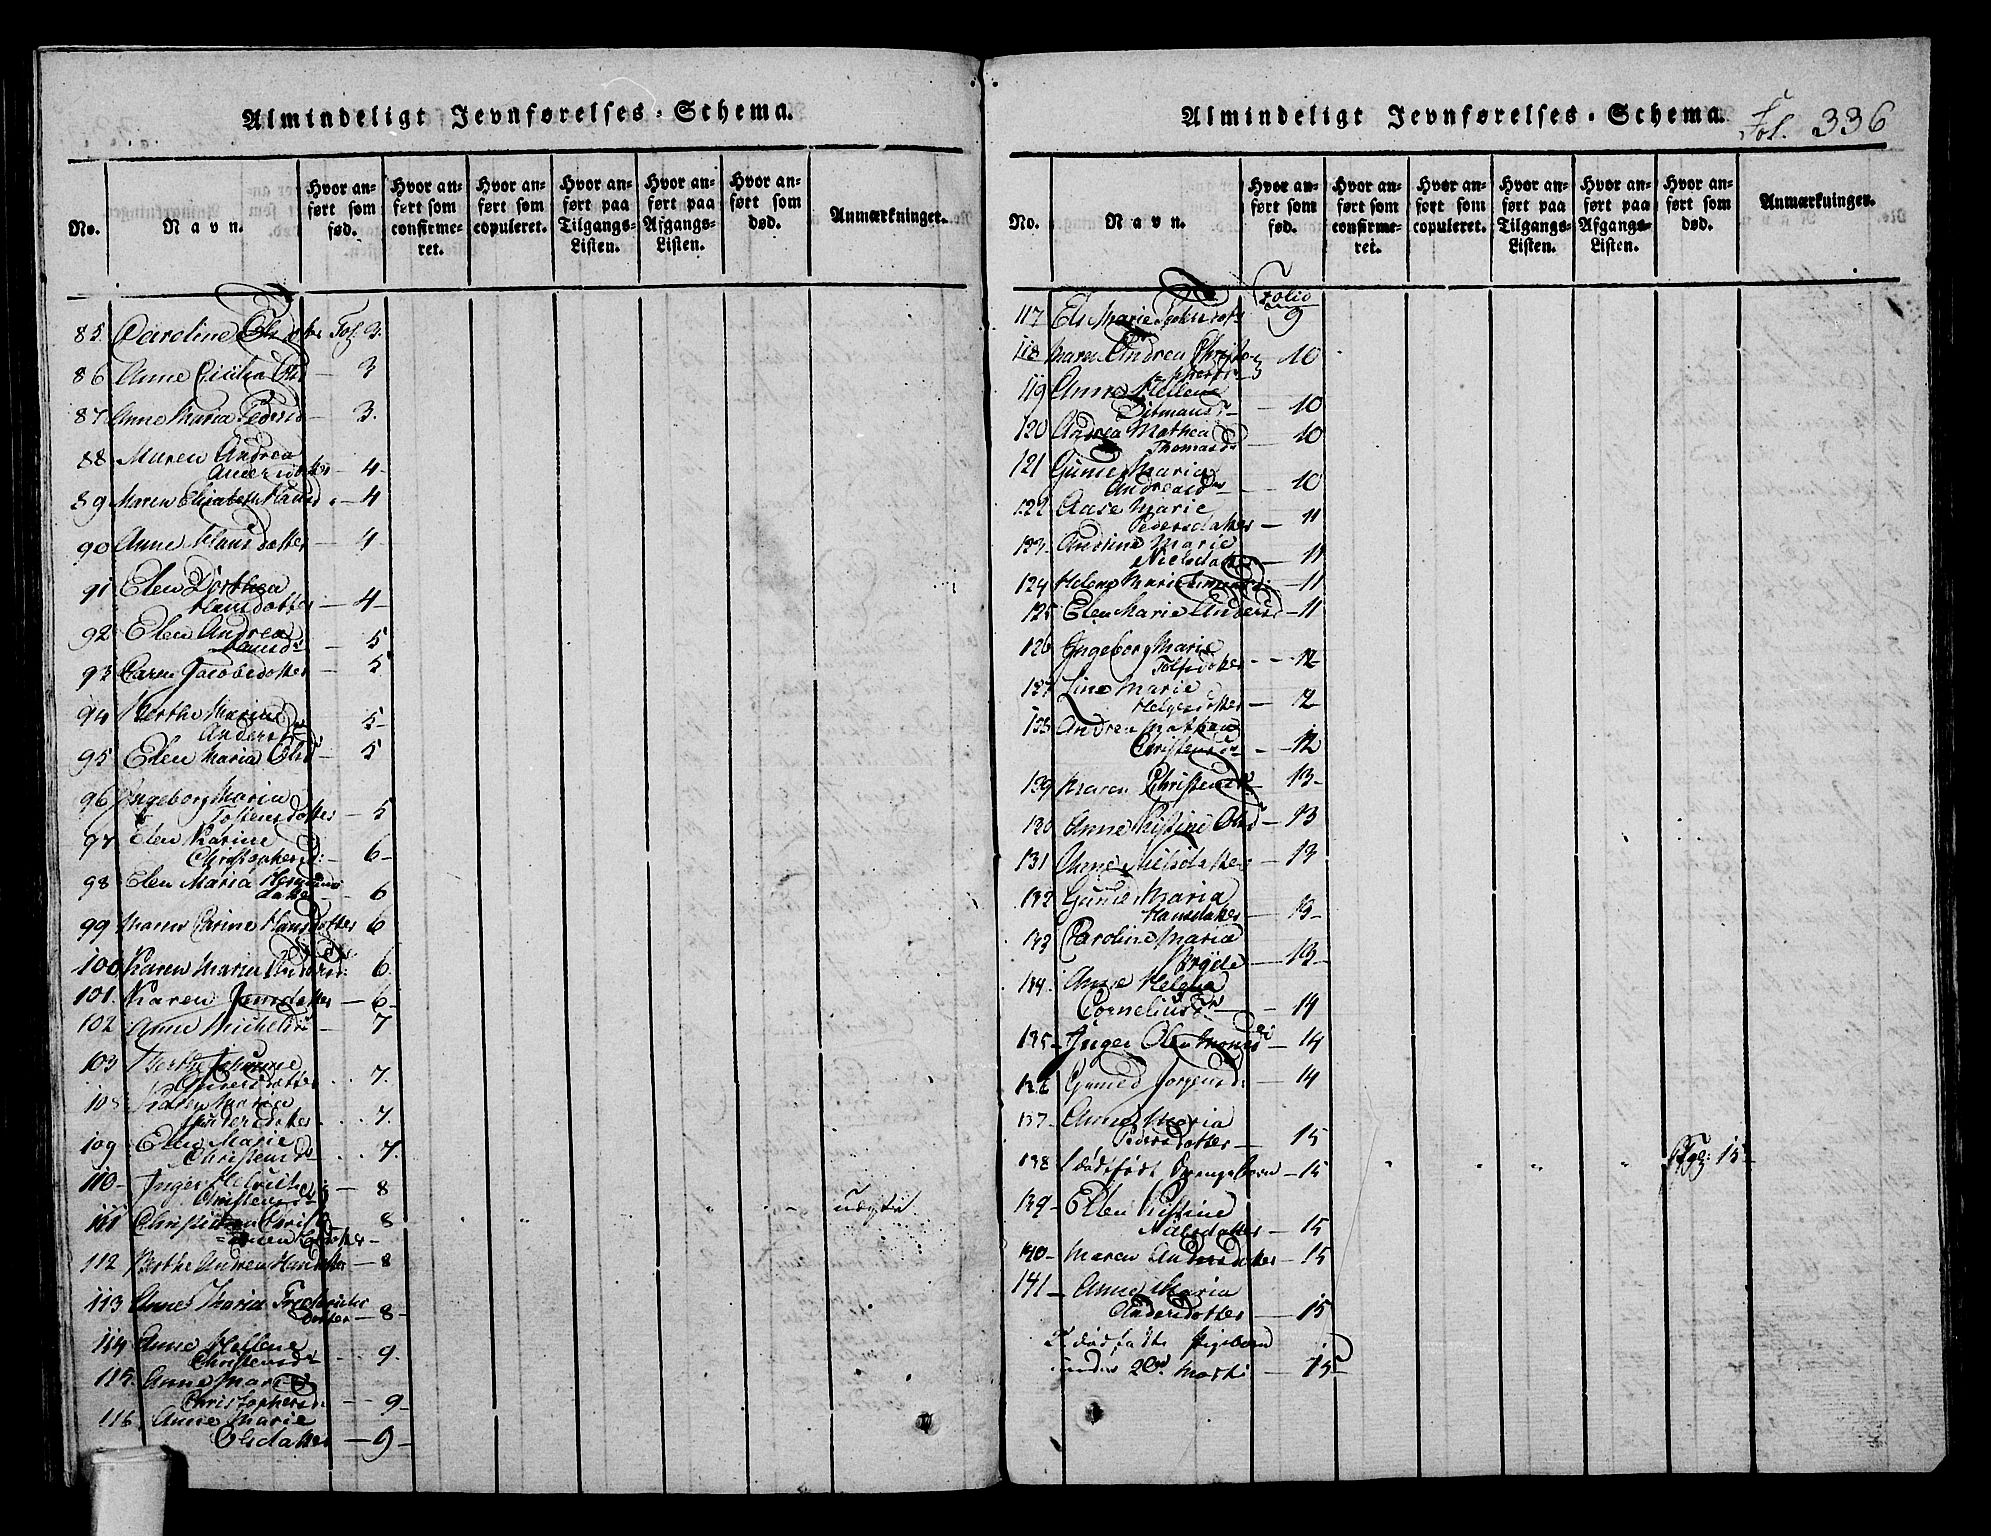 Almindeligt Jevnførelses-Schema.
No.
Navn.
Hvor anført som fød.
Hvor anført som confirmeret.
Hvor anført som copuleret.
Hvor anført paa Tilgangs-Listen.
Hvor anført paa Afgangs-Listen.
Hvor anført som død.
Anmærkninger.
85. Caroline Olsdatter Fol. 3.
86 Anne Cicilia Olsd — 3
87 Anne Maria Pedersd — 3.
88 Maren Andrea
Andersdatter — 4
89 Maren Elisabeth Hansd — 4
90 Anne Hansdatter — 4
91 Elen Dorthea
Hansdatter — 4
92 Elen Andrea
Hansd — 5
93 Caren Jacobsdatter — 5
94 Berthe Marine
Andersdr 5
95 Elen Maria Olsd — 5
96 Ingeborg Maria
Tostensdatter — 5
97 Elen Karine
Christophersd: — 6
98 Elen Maria
datter — 6
99 Maren Carine Hansdatter 6
100 Karen Maria Andersd: 6
101. Karen Jensdatter — 6
102 Anne Michelsdr — 7
103 Berthe Johanne
Gundersdatter . . 7.
Karen Maria
. . 7.
109 Elen Marie
Christensdr . . 7.
110 Inger
Christensdr — 8
111 Christian
8 udgaar
112 Berthe Andrea Hansdatter — 8
113 Anne Maria Frederichsdatter — 8
114 Anne Hellene
Christensdr 9.
115. Anne Marie
Christophersd — 9
116 Anne Marie
Olsdatter — 9
Almindeligt Jevnførelses-Schema.
Fol. 336
No.
Navn.
Hvor anført som fød.
Hvor anført som confirmeret.
Hvor anført som copuleret.
Hvor anført paa Tilgangs-Listen.
Hvor anført paa Afgangs-Listen.
Hvor anført som død.
Anmærkninger.
Folio
117 Els Marie 9
118 Maren Andrea Christophersdr 10
119 Anne Hellene
Ditmansdr — 10
120 Andrea Mathea
Thomasdr — 10
121 Gunne Maria
Andreasdr — 10
122 Aase Marie
Pedersdatter — 11
123 Andrine Marie
Nielsdatter — 11
124 Helene Marie — 11
125 Elen Marie Andersd — 11
126 Ingeborg Marie
— 12
Line Marie
Helgesdatter — 12
Andrea Mathea
Christensdr — 12
139 Maren Christensdr — 13
130 Anne Kistine Olsd — 13
131 Anne Nielsdatter — 13
132 Gunne Maria
Hansdatter — 13
133 Caroline Maria
Bryde — 13
134. Anne Helena
Corneliusdr — 14
135 Inger Olea — 14
136 Gunild Jorgensd: — 14
137. Anne Maria
Pedersdatter — 15
138 1 dødfødt Drengebarn — 15 " " " " Pag: 15
139 Ellen Kistine
Nielsdatter — 15
140 Maren Andersdatter — 15
141 Anne Maria
Andersdatter — 15
Et dødfødte Pigebarn
under 20de Marti — 15